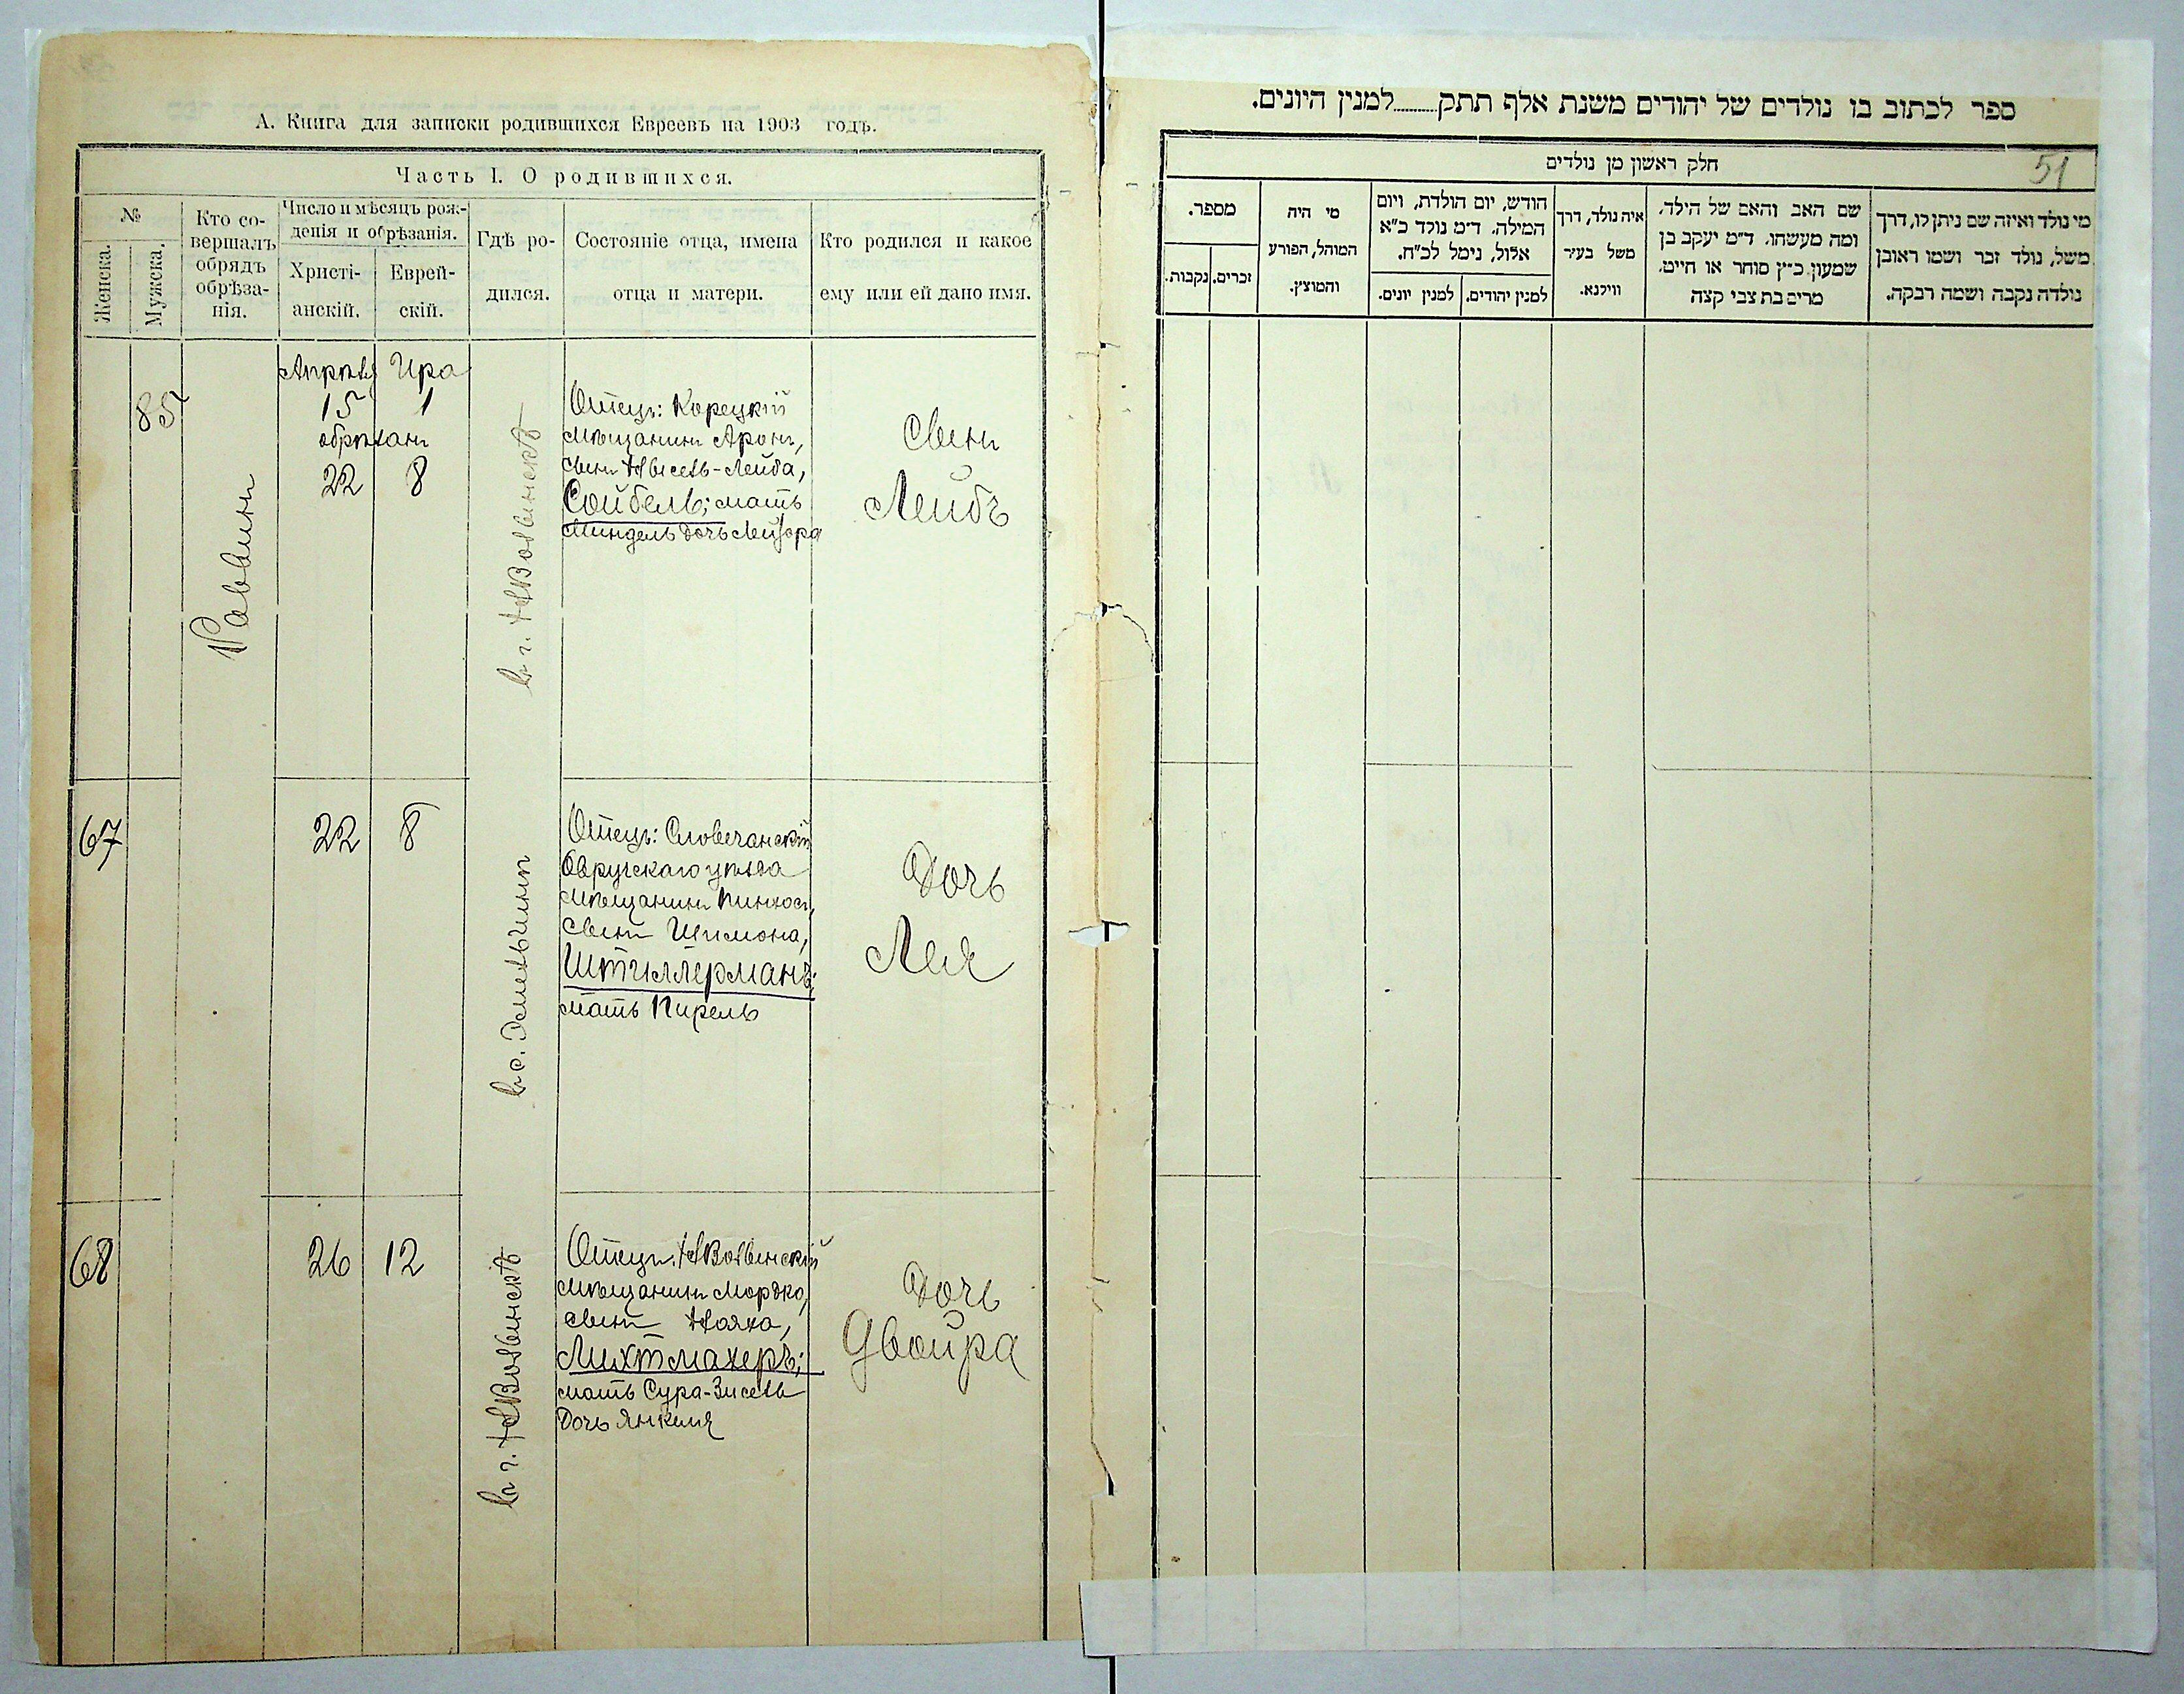 А. Книга для записки родившихся Евреевъ на 1903 годъ.
Часть I. О родившихся.
№
Женска.
Мужска.
Кто со-
вершалъ
обрядъ
обрѣза-
нія.
Число и мѣсяцъ рож-
денія и обрѣзанія.
Христі-
анскій.
Еврей-
скій.
Гдѣ ро-
дился.
Состояніе отца, имена
отца и матери.
Кто родился и какое
ему или ей дано имя.
85
Раввинъ
Апрѣля Ира
15 1
обрѣзанъ
22 8
Отецъ: Корецкій
мѣщанинъ Аронъ,
Лейба,
Сойбель; мать
Миндель дочь Лейзора
Сынъ
Лейбъ
67
22 8
Отецъ: Словечанскій
Овручскаго уѣзда
мѣщанинъ Пинхосъ,
сынъ Шимона,
Штиллерманъ;
мать Пирель
Дочь
Лея
68
26 12
въ г.
Отецъ:
мѣщанинъ Мордко,
сынъ Нояха,
Лихтмахеръ;
мать Сура-Зисель
дочь Янкеля
Дочь
Двойра
ספר לכתוב בו נולדים של יהודים משנת אלף תתק........למנין היונים.
חלק ראשון מן נולדים
51
מספר.
זכרים.
נקבות.
מי היה
המוהל, הפורע
והמוצץ.
חודש, יום הולדת, ויום
המילה. ד״מ נולד כ״א
אלול, נימל לכ״ח.
למנין יהודים.
למנין יונים.
איה נולד, דרך
משל בעיר
ווילנא.
שם האב והאם של הילד,
ומה מעשהו. ד״מ יעקב בן
שמעון כ״ץ סוחר או חייט,
מרים בת צבי קצה
מי נולד ואיזה שם ניתן לו, דרך
משל, נולד זכר ושמו ראובן
נולדה נקבה ושמה רבקה.